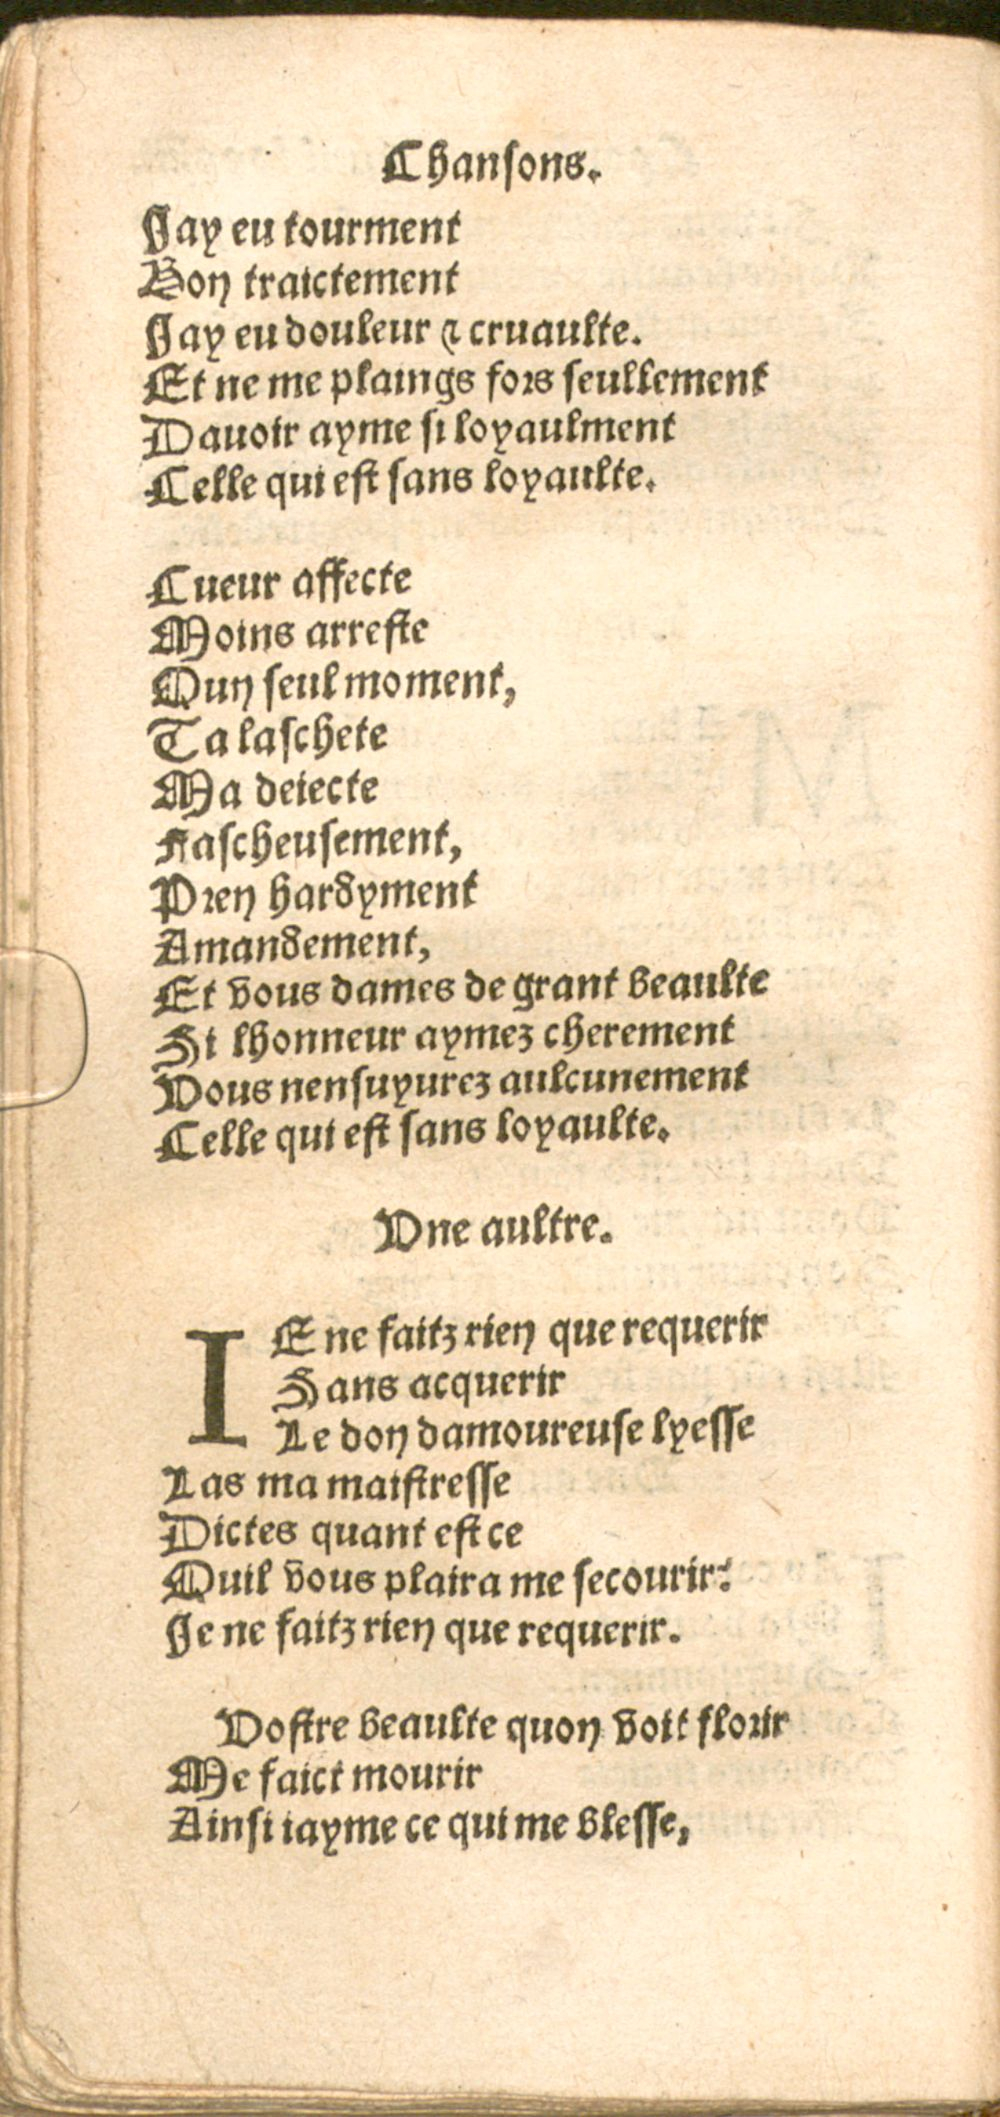 Chansons.
Jay eu tourment
Bon traictement
Jay eu douleur ⁊ cruaulte.
Et ne me plaings fors seullement
Dauoir ayme si loyaulment
Celle qui est sans loyaulte.
Cueur affecte
Moins arreste
Qun seul moment,
Ta laschete
Ma deiecte
Fascheusement,
Pren hardyment
Amandement,
Et vous dames de grant beaulte
Si lhonneur aymez cherement
Vous nensuyurez aulcunement
Celle qui est sans loyaulte.
Vne aultre.
IE ne faitz rien que requerir
Sans acquerir
Le don damoureuse lyesse
Las ma maistresse
Dictes quant est ce
Quil vous plaira me secourir?
Je ne faitz rien que requerir.
Vostre beaulte quon voit florir
Me faict mourir
Ainsi iayme ce qui me blesse,